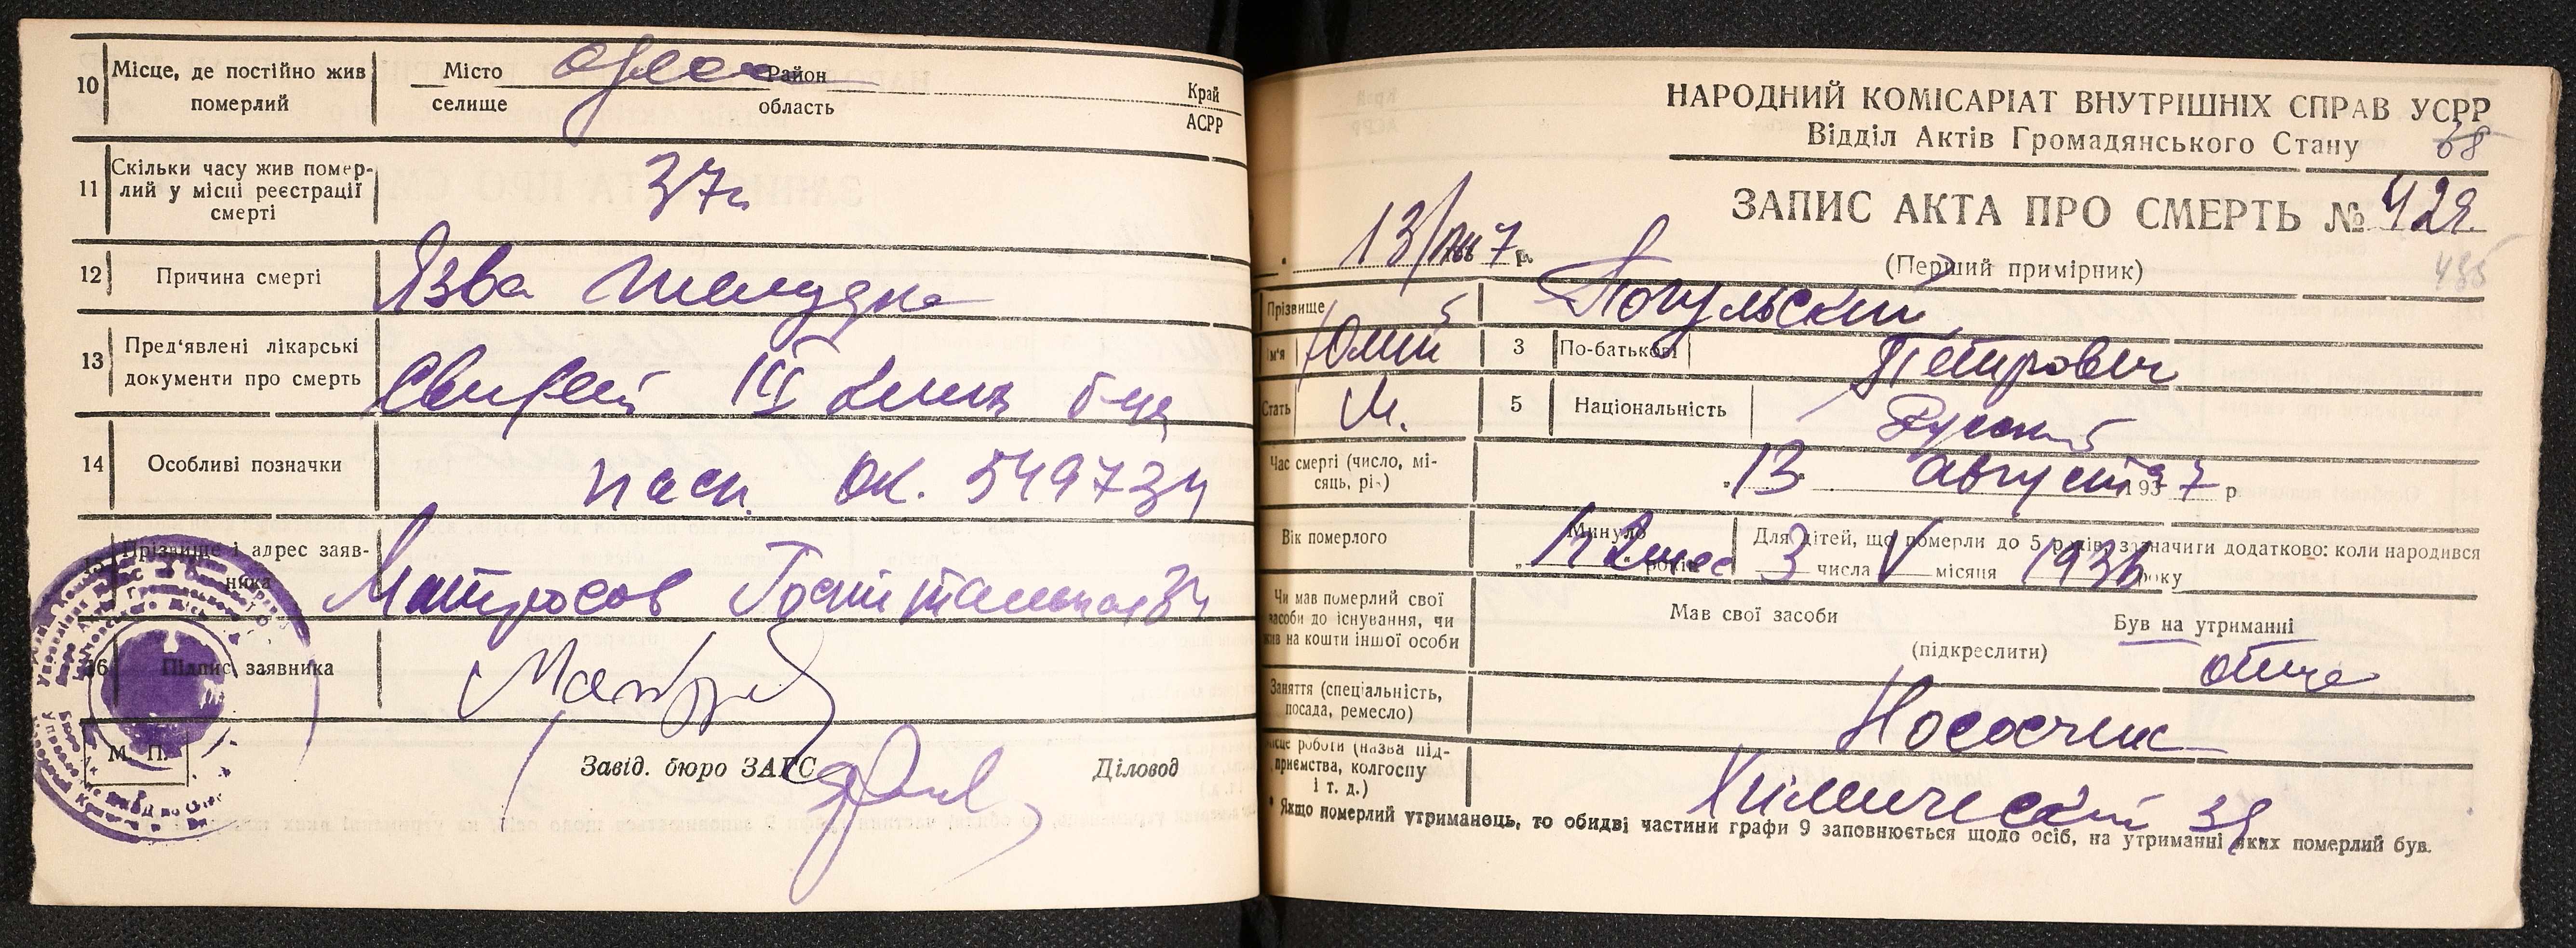 10 Місце, де постійно жив померлий
Місто селище Одесса Район область Край АСРР
11 Скільки часу жив помер-
лий у місці реєстрації
смерті
37г
12 Причина смерті Язва желудка
13 Пред'явлені лікарські
документи про смерть
III Клин б-ца
14 Особливі позначки пасп. ОК. 549734
15 Прізвище і адрес заяв-
ника
Матросов Госпитальная 34
16 Підпис заявника
М. П.
Завід. бюро ЗАГС Діловод
НАРОДНИЙ КОМІСАРІАТ ВНУТРІШНІХ СПРАВ УСРР
Відділ Актів Громадянського Стану
68
ЗАПИС АКТА ПРО СМЕРТЬ №
13/VIII 7 р.
(Перший примірник)
485
Прізвище
Ім'я Юлий 3 По-батькові Петрович
Стать М. 5 Національність Русский
Час смерті (число, мі-
сяць, рік)
"13" августа 1937 р
Вік померлого
Минуло
1г 2мес років
Для дітей, що померли до 5 років, зазначити додатково: коли народився
3 числа V місяця 1936 року
Чи мав померлий свої
засоби до існування, чи
жив на кошти іншої особи
Мав свої засоби Був на утриманні
(підкреслити)
отца
Заняття (спеціальність,
посада, ремесло)
Місце роботи (назва під-
приємства, колгоспу
і т. д.)
Химический
* Якщо померлий утриманець, то обидві частини графи 9 заповнюється щодо осіб, на утриманні яких померлий був.